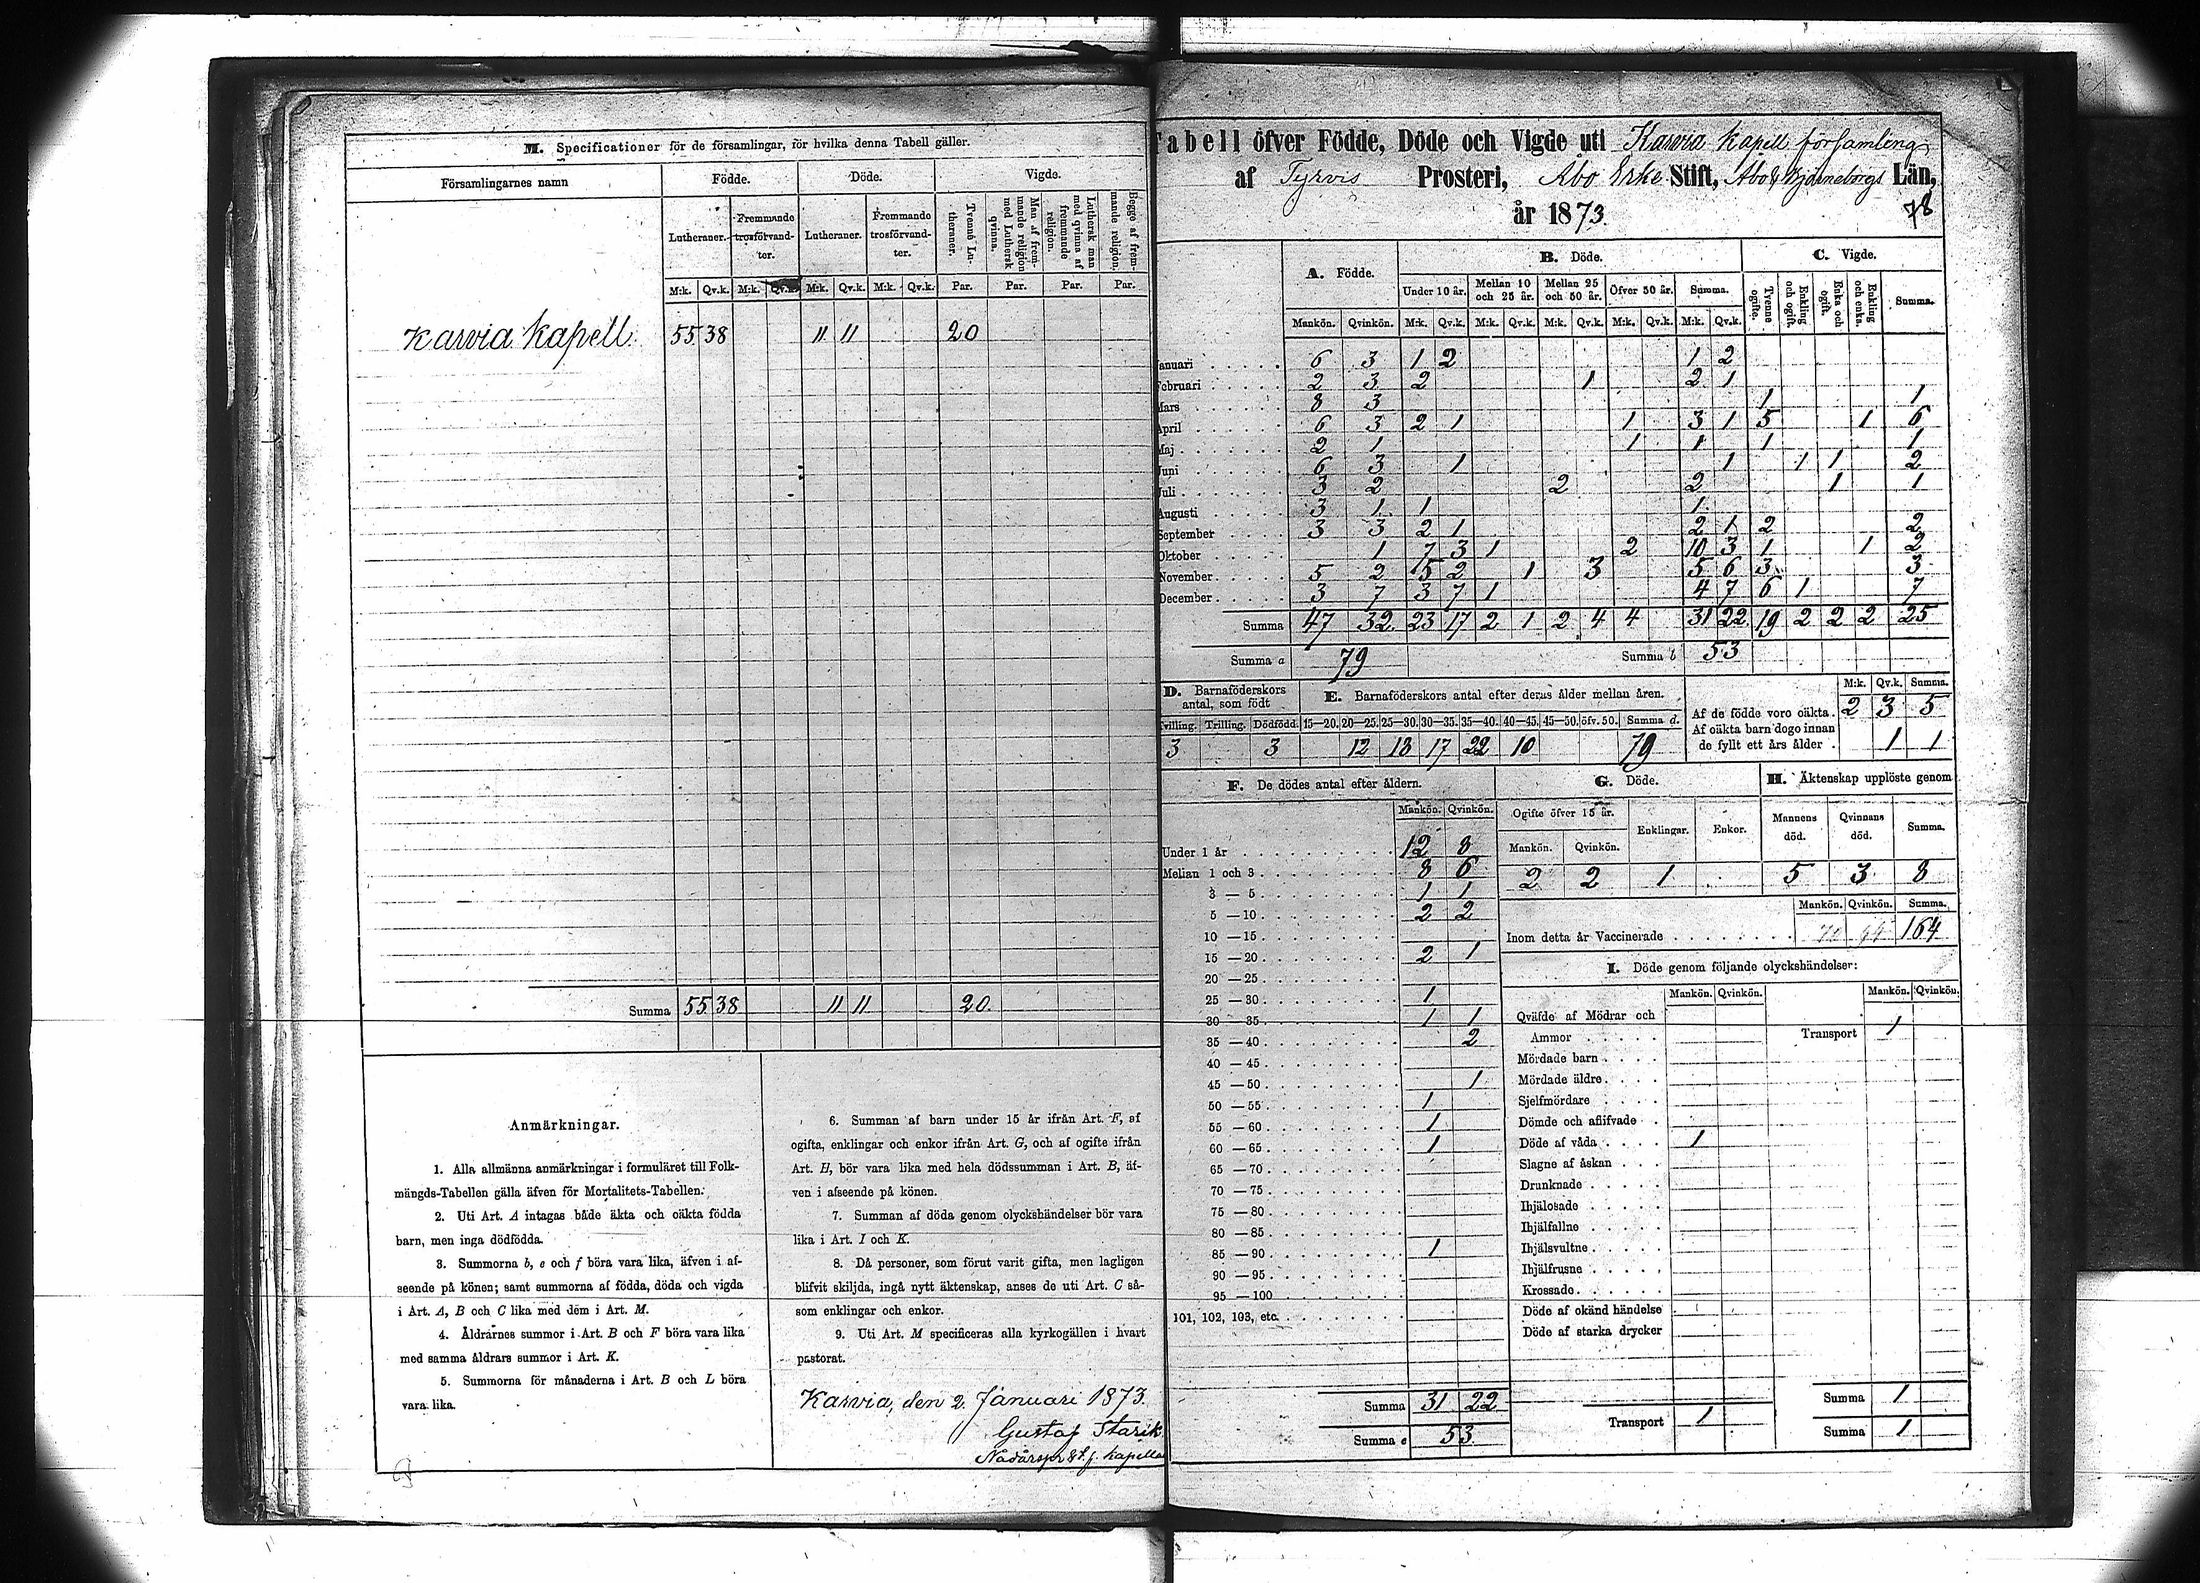 M. Specificationer för de församlingar, för hvilka denna Tabell gäller.
Församlingarnes namn Födde. Döde. Vigde.
Lutheraner. Fremmande trosförvandter. Lutheraner. Fremmande trosförvandter. Tvenne Lutheraner. Man af fremmande religion med Luthersk qvinna. Luthersk man med qvinna af fremmande religion. Begge af fremmande religion.
M:k. Qv.k. M:k. Qv.k. M:k. Qv.k. M:k. Qv.k. Par. Par. Par. Par.
Karvia Kapell. 55 38 11 11 20
Summa 55 38 11 11 20
Anmärkningar.
1. Alla allmänna anmärkningar i formuläret till Folk-
mängds-Tabellen gälla äfven för Mortalitets-Tabellen.
2. Uti Art. A intagas både äkta och oäkta födda
barn, men inga dödfödda.
3. Summorna b, e och f böra vara lika, äfven i af-
seende på könen; samt summorna af födda, döda och vigda
i Art. A, B och C lika med dem i Art. M.
4. Åldrarnes summor i Art. B och F böra vara lika
med samma åldrars summor i Art. K.
5. Summorna för månaderna i Art. B och L böra
vara lika.
6. Summan af barn under 15 år ifrån Art. F, af
ogifta, enklingar och enkor ifrån Art. G, och af ogifte ifrån
Art. H, bör vara lika med hela dödssumman i Art. B, äf-
ven i afseende på könen.
7. Summan af döda genom olyckshändelser bör vara
lika i Art. I och K.
8. Då personer, som förut varit gifta, men lagligen
blifvit skiljda, ingå nytt äktenskap, anses de uti Art. C så-
som enklingar och enkor.
9. Uti Art. M specificeras alla kyrkogällen i hvart
pastorat.
Karvia, den 2 Januari 1873.
Gustaf Starck
Nådårspr. & t.f. kapellan
Tabell öfver Födde, Döde och Vigde uti Karvia Kapell församling
af Tyrvis Prosteri, Åbo Erke Stift, Åbo & Björneborgs Län,
år 1873. 78
A. Födde. B. Döde. C. Vigde.
Under 10 år. Mellan 10 och 25 år. Mellan 25 och 50 år. Öfver 50 år. Summa. Tvenne ogifte. Enkling och ogift. Enka och ogift. Enkling och enka. Summa.
Mankön. Qvinkön. M:k. Qv.k. M:k. Qv.k. M:k. Qv.k. M:k. Qv.k. M:k. Qv.k.
Januari 6 3 1 2 1 2
Februari 2 3 2 1 2 1
Mars 8 3 1 1
April 6 3 2 1 1 3 1 5 1 6
Maj 2 1 1 1 1 1
Juni 6 3 1 1 1 1 2
Juli 3 2 2 2 1 1
Augusti 3 1 1 1
September 3 3 2 1 2 1 2 2
Oktober 1 7 3 1 2 10 3 1 1 2
November 5 2 5 2 1 3 5 6 3 3
December 3 7 3 7 1 4 7 6 1 7
Summa 47 32 23 17 2 1 2 4 4 31 22 19 2 2 2 25
Summa a 79 Summa b 53
D. Barnaföderskors antal, som födt
Tvilling. Trilling. Dödfödd.
3 3
E. Barnaföderskors antal efter deras ålder mellan åren.
15—20. 20—25. 25—30. 30—35. 35—40. 40—45. 45—50. öfv. 50. Summa d.
12 18 17 22 10 79
M:k. Qv.k. Summa.
Af de födde voro oäkta. 2 3 5
Af oäkta barn dogo innan
de fyllt ett års ålder 1 1
F. De dödes antal efter åldern.
Mankön. Qvinkön.
Under 1 år 12 8
Mellan 1 och 3 8 6
3 — 5 1 1
5 — 10 2 2
10 — 15
15 — 20 2 1
20 — 25
25 — 30 1
30 — 35 1 1
35 — 40 2
40 — 45
45 — 50 1
50 — 55 1
55 — 60 1
60 — 65 1
65 — 70
70 — 75
75 — 80
80 — 85
85 — 90 1
90 — 95
95 — 100
101, 102, 103, etc.
Summa 31 22
Summa e 53
G. Döde.
Ogifte öfver 15 år. Enklingar. Enkor.
Mankön. Qvinkön.
2 2 1
H. Äktenskap upplöste genom
Mannens död. Qvinnans död. Summa.
5 3 8
Mankön. Qvinkön. Summa.
Inom detta år Vaccinerade 164
I. Döde genom följande olyckshändelser:
Mankön. Qvinkön. Mankön. Qvinkön.
Qväfde af Mödrar och
Ammor Transport 1
Mördade barn
Mördade äldre
Sjelfmördare
Dömde och aflifvade
Döde af våda 1
Slagne af åskan
Drunknade
Ihjälosade
Ihjälfallne
Ihjälsvultne
Ihjälfrusne
Krossade
Döde af okänd händelse
Döde af starka drycker
Transport 1
Summa 1
Summa 1